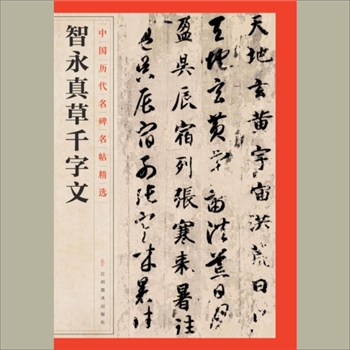 中国历代名碑名帖精选
智永真草千字文
江西美术出版社
天地玄黄宇宙洪荒日月
天地玄黄宇宙洪荒日月
盈昃辰宿列張寒来暑往
盈昃辰宿列張寒来暑往